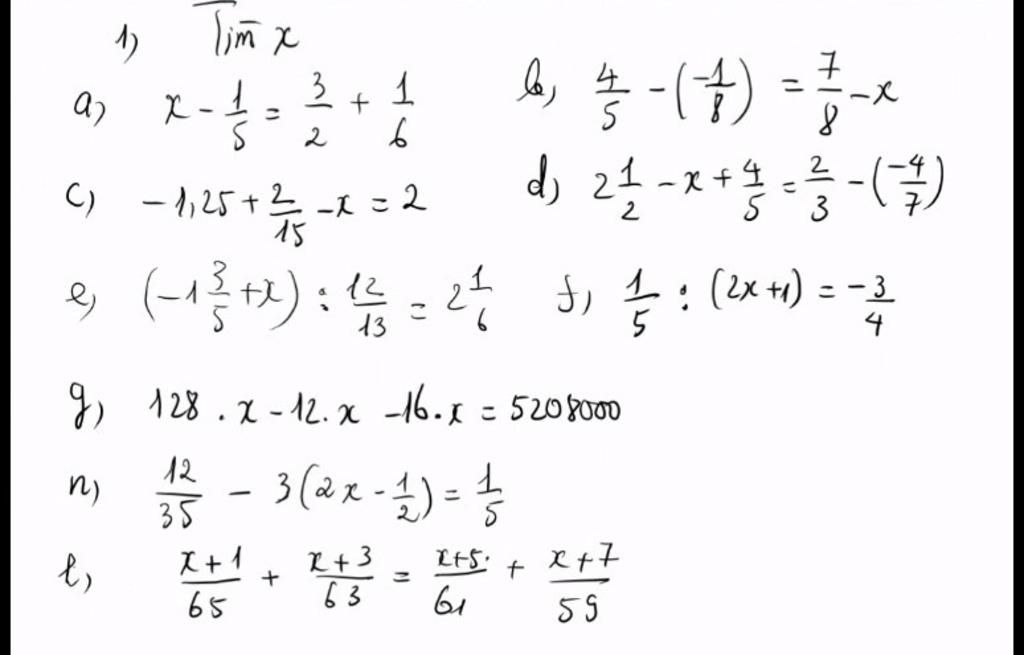 1) Tìm x
a) x - 1/5 = 3/2 + 1/6
b) 4/5 - (-1/8) = 7/8 - x
c) -1,25 + 2/15 - x = 2
d) 2 1/2 - x + 4/5 = 2/3 - (-4/7)
e) (-1 3/5 + x) : 12/13 = 2 1/6
f) 1/5 : (2x + 1) = -3/4
g) 128 . x - 12. x - 16. x = 5208000
n) 12/35 - 3(2x - 1/2) = 1/5
l) x+1/65 + x+3/63 = x+5/61 + x+7/59